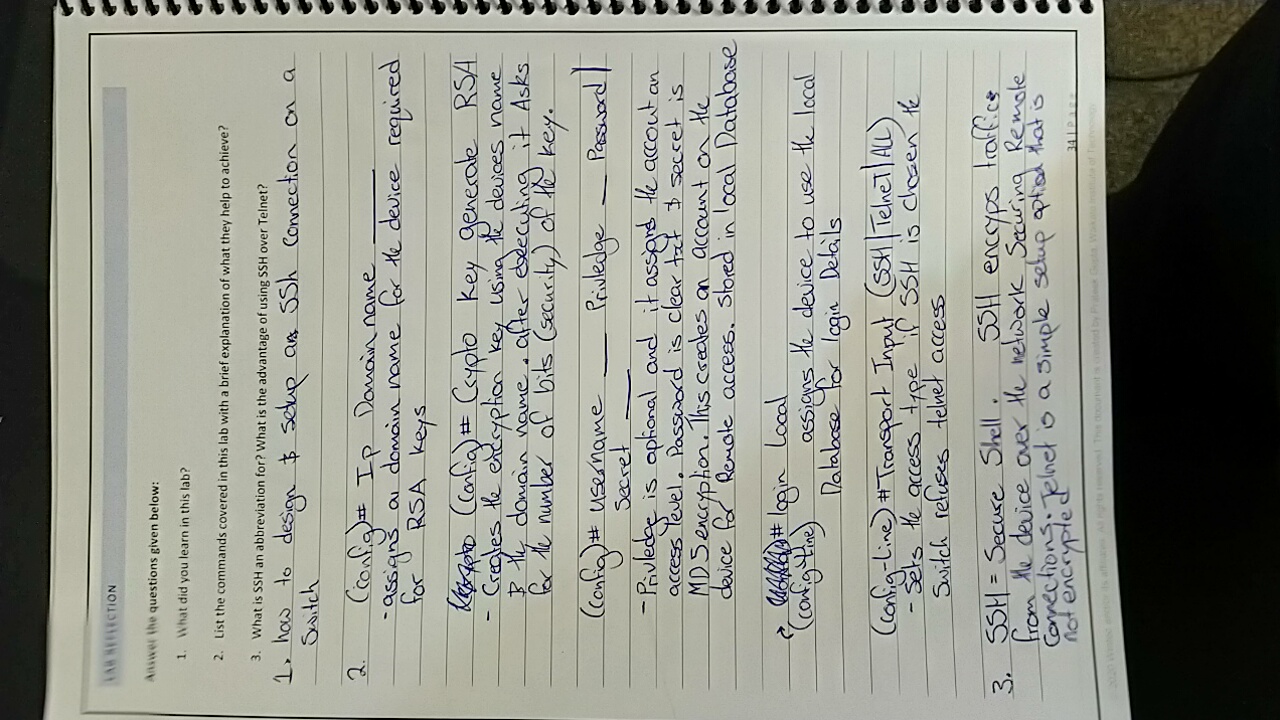 LAB REFLECTION
Answer the questions given below:
1. What did you learn in this lab?
2. List the commands covered in this lab with a brief explanation of what they help to achieve?
3. What is SSH an abbreviation for? What is the advantage of using SSH over Telnet?
1. how to design & setup an SSh Connection on a
Switch
2. (config)# Ip Domain name ______
- assigns a domain name for the device required
for RSA keys
(config)# Crypto key generate RSA
- Creates the encryption key using the devices name
& the domain name. after executing it Asks
for the number of bits (security) of the key.
(config)# username ___ Privledge __ Password |
Secret ___
- Privledge is optional and it assigns the accout an
access level. Password is clear text & secret is
MD5 encryption. This creates an account on the
device for Remote access. Stored in local Database
# login Local
(config-line) assigns the device to use the local
Database for login Details
(config-Line) # Transport Input (SSH|TelneT|ALL)
- Sets the access type if SSH is chosen the
Switch refuses telnet access
3. SSH = Secure Shell. SSH encryps traffic
from the device over the network Securing Remote
Connections. Telnet is a simple setup option that is
not encrypted
34 | Page
2020 Wintec and/or its affiliates. All rights reserved. This document is created by Prateek Gupta, Waikato Institute of Technology